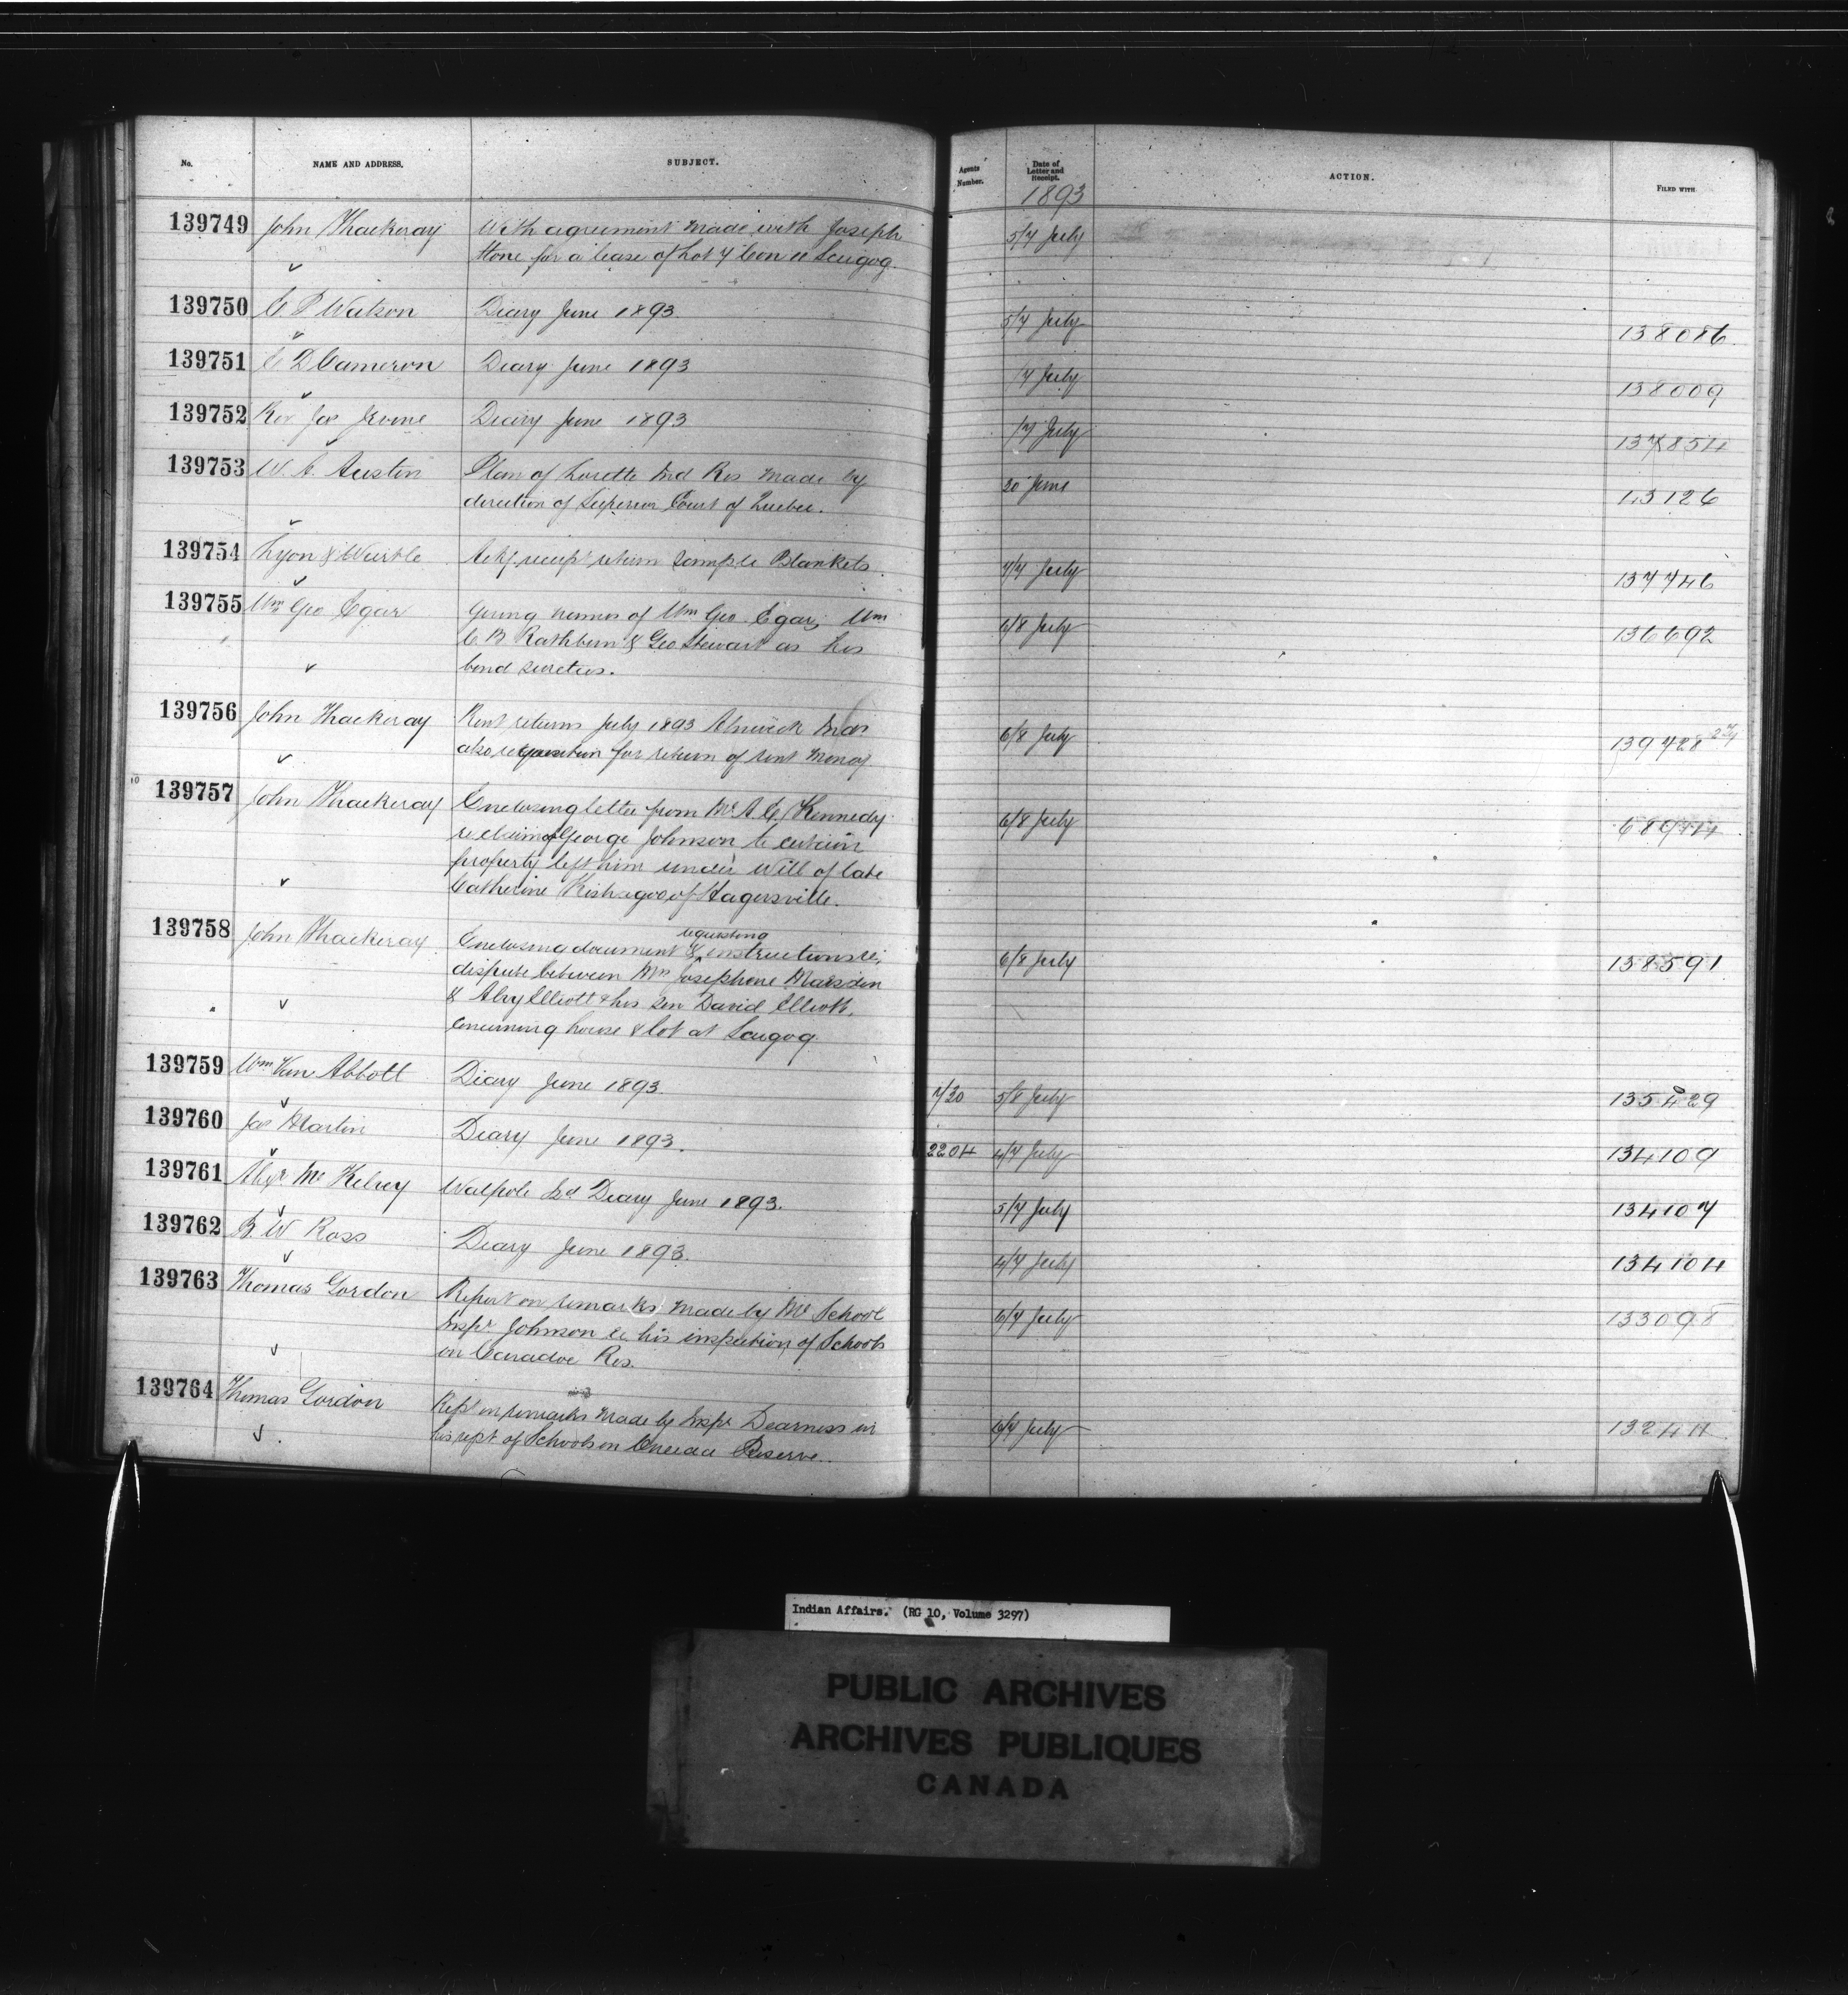 No. NAME AND ADDRESS. SUBJECT. Agents Number. Date of Letter and Receipt. ACTION. FILED WITH
1893
139749 John Thackeray With agreement made with Joseph 5/7 July
Stone for a lease of Lot 7 Con 11 Scugog.
139750 C. P Watson Diary June 1893. 5/7 July 138086
139751 E D Cameron Diary June 1893 /7 July 138009
139752 Rev Jas Irvine Diary June 1893 /7 July 137854
139753 W. A. Austin Plan of Lorette Ind Res made by 20 June 13126
direction of Superior Court of Quebec.
139754 Lyon & Wurtle Ackg receipt return sample Blankets 7/7 July 137746
139755 Wm Geo Egar Giving names of Wm Geo Egar, Wm 6/8 July 136692
C. B Rathbun & Geo Stewart as his
bond sureties.
139756 John Thackeray Rent returns July 1893 Alnwick Inds 6/8 July 139428
also requisition for return of rent money
139757 John Thackeray Enclosing letter from Mr A. E. Kennedy 6/8 July
re claim of George Johnson to certain
property left him under Will of late
Catherine Kishegoo, of Hagersville.
139758 John Thackeray Enclosing document & requesting instructions re; 6/8 July 138591
dispute between Mrs Josephone Marsden
& Alxy Elliott & his son David Elliott,
concerning house & lot at Scugog
139759 Wm Van Abbott Diary June 1893. 7/20 5/8 July 135429
139760 Jas Martin Diary June 1893. 2204 4/7 July 134109
139761 Alexr Mc Kelvey Walpole Isd Diary June 1893. 5/7 July 134107
139762 B. W Ross Diary June 1893. 4/7 July 134104
139763 Thomas Gordon Report on remarks made by Mr School 6/7 July 133098
Inspr Johnson re his inspection of Schools
on Caradoc Res.
139764 Thomas Gordon Rept on remarks made by Inspr Dearness in 6/7 July
his rept of Schools on Oneida Reserve.
Indian Affairs. (RG 10, Volume 3297)
PUBLIC ARCHIVES
ARCHIVES PUBLIQUES
CANADA